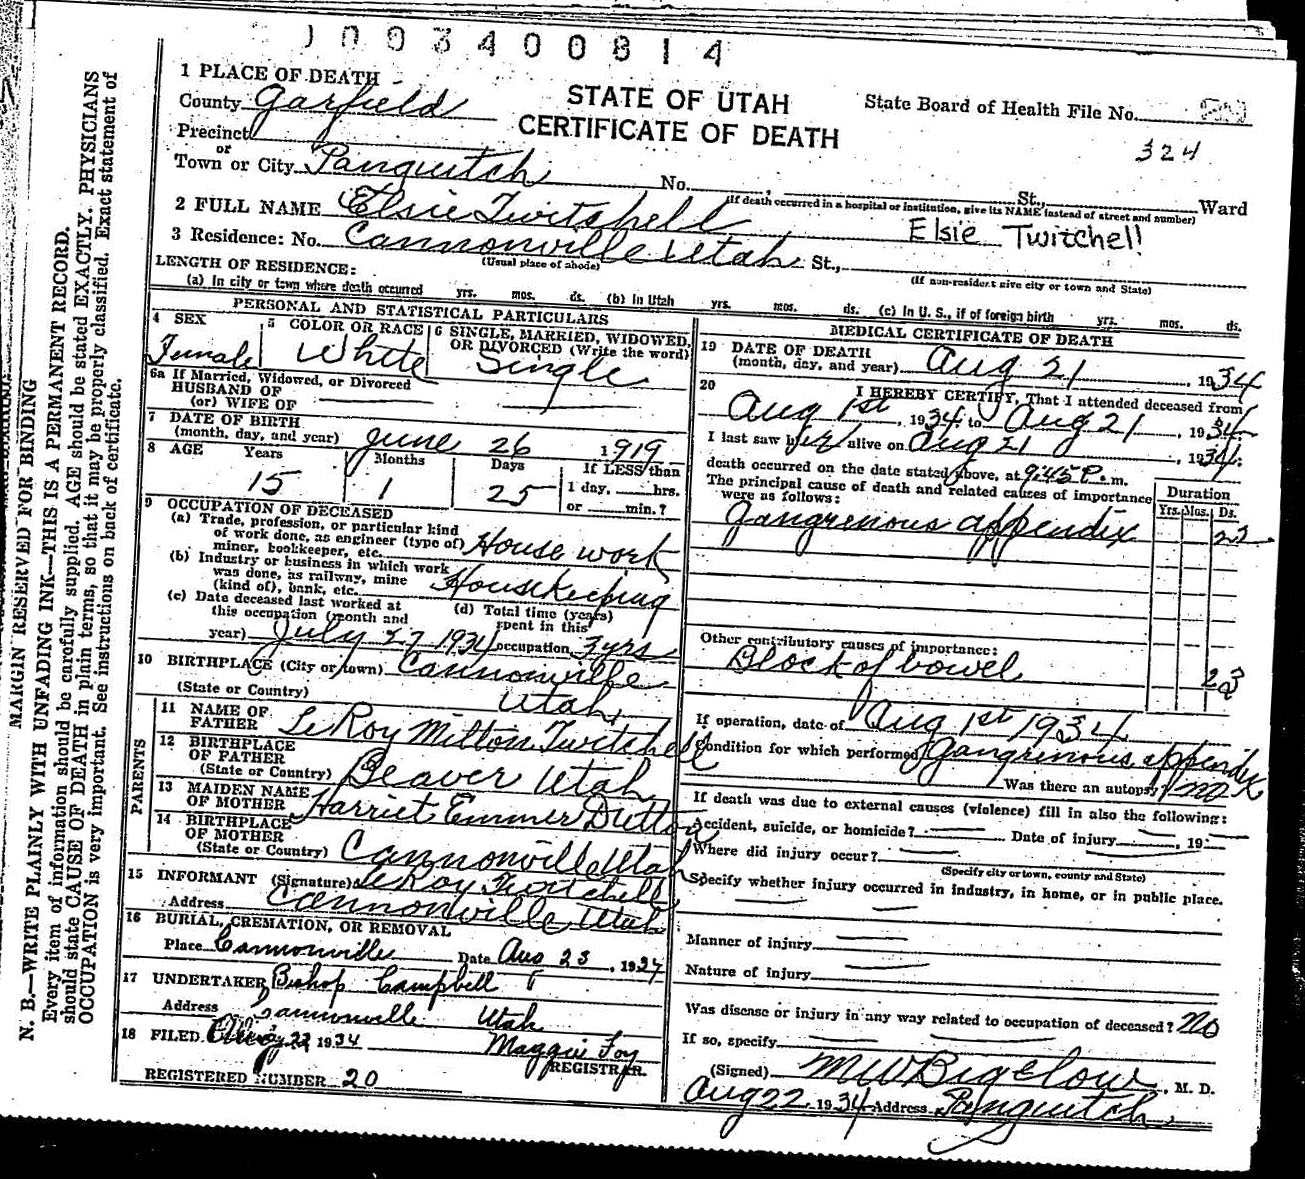 1003400814
1 PLACE OF DEATH
County Garfield
STATE OF UTAH
CERTIFICATE OF DEATH
State Board of Health File No.
324
Precinct
or
Town or City Panguitch No. , St., Ward
(If death occurred in a hospital or institution, give its NAME instead of street and number)
2 FULL NAME Elsie Twitchell
Elsie Twitchell
3 Residence: No. Cannonville Utah St.,
(Usual place of abode)
(If non-resident give city or town and State)
LENGTH OF RESIDENCE:
(a) In city or town where death occurred yrs. mos. ds. (b) In Utah yrs. mos. ds. (c) In U. S., if of foreign birth yrs. mos. ds.
PERSONAL AND STATISTICAL PARTICULARS
4 SEX
Female
5 COLOR OR RACE
White
6 SINGLE, MARRIED, WIDOWED,
OR DIVORCED (Write the word)
Single
6a If Married, Widowed, or Divorced
HUSBAND OF
(or) WIFE OF
7 DATE OF BIRTH
(month, day, and year) June 26 1919
8 AGE Years Months Days If LESS than
15 1 25 1 day, hrs.
or min.?
9 OCCUPATION OF DECEASED
(a) Trade, profession, or particular kind
of work done, as engineer (type of)
miner, bookkeeper, etc. House work
(b) Industry or business in which work
was done, as railway, mine
(kind of), bank, etc. Housekeeping
(c) Date deceased last worked at
this occupation (month and
year) July 27 1934
(d) Total time (years)
spent in this
occupation 3 yrs
10 BIRTHPLACE (City or town) Cannonville
(State or Country) Utah
PARENTS
11 NAME OF
FATHER LeRoy Milton Twitchell
12 BIRTHPLACE
OF FATHER
(State or Country) Beaver Utah
13 MAIDEN NAME
OF MOTHER Harriet Emmer Dutton
14 BIRTHPLACE
OF MOTHER
(State or Country) Cannonville Utah
15 INFORMANT (Signature) LeRoy Twitchell
Address Cannonville Utah
16 BURIAL, CREMATION, OR REMOVAL
Place Cannonville Date Aug 23, 1934
17 UNDERTAKER Bishop Campbell
Address Cannonville Utah
18 FILED Aug 22 1934 Maggie Foy
REGISTRAR.
REGISTERED NUMBER 20
MEDICAL CERTIFICATE OF DEATH
19 DATE OF DEATH
(month, day, and year) Aug 21, 1934
20 I HEREBY CERTIFY, That I attended deceased from
Aug 1st, 1934 to Aug 21, 1934
I last saw her alive on Aug 21, 1934.
death occurred on the date stated above, at 9:45 P. m.
The principal cause of death and related causes of importance
were as follows:
Duration
Yrs. Mos. Ds.
Gangrenous appendix 23
Other contributory causes of importance:
Block of bowel 23
If operation, date of Aug 1st 1934
Condition for which performed Gangrenous appendix
Was there an autopsy?
If death was due to external causes (violence) fill in also the following:
Accident, suicide, or homicide? Date of injury , 19
Where did injury occur?
(Specify city or town, county and State)
Specify whether injury occurred in industry, in home, or in public place.
Manner of injury
Nature of injury
Was disease or injury in any way related to occupation of deceased? No
If so, specify
(Signed) M W Bigelow, M. D.
Aug 22 1934 Address Panguitch,
MARGIN RESERVED FOR BINDING
N. B.—WRITE PLAINLY WITH UNFADING INK—THIS IS A PERMANENT RECORD.
Every item of information should be carefully supplied. AGE should be stated EXACTLY. PHYSICIANS
should state CAUSE OF DEATH in plain terms, so that it may be properly classified. Exact statement of
OCCUPATION is very important. See instructions on back of certificate.